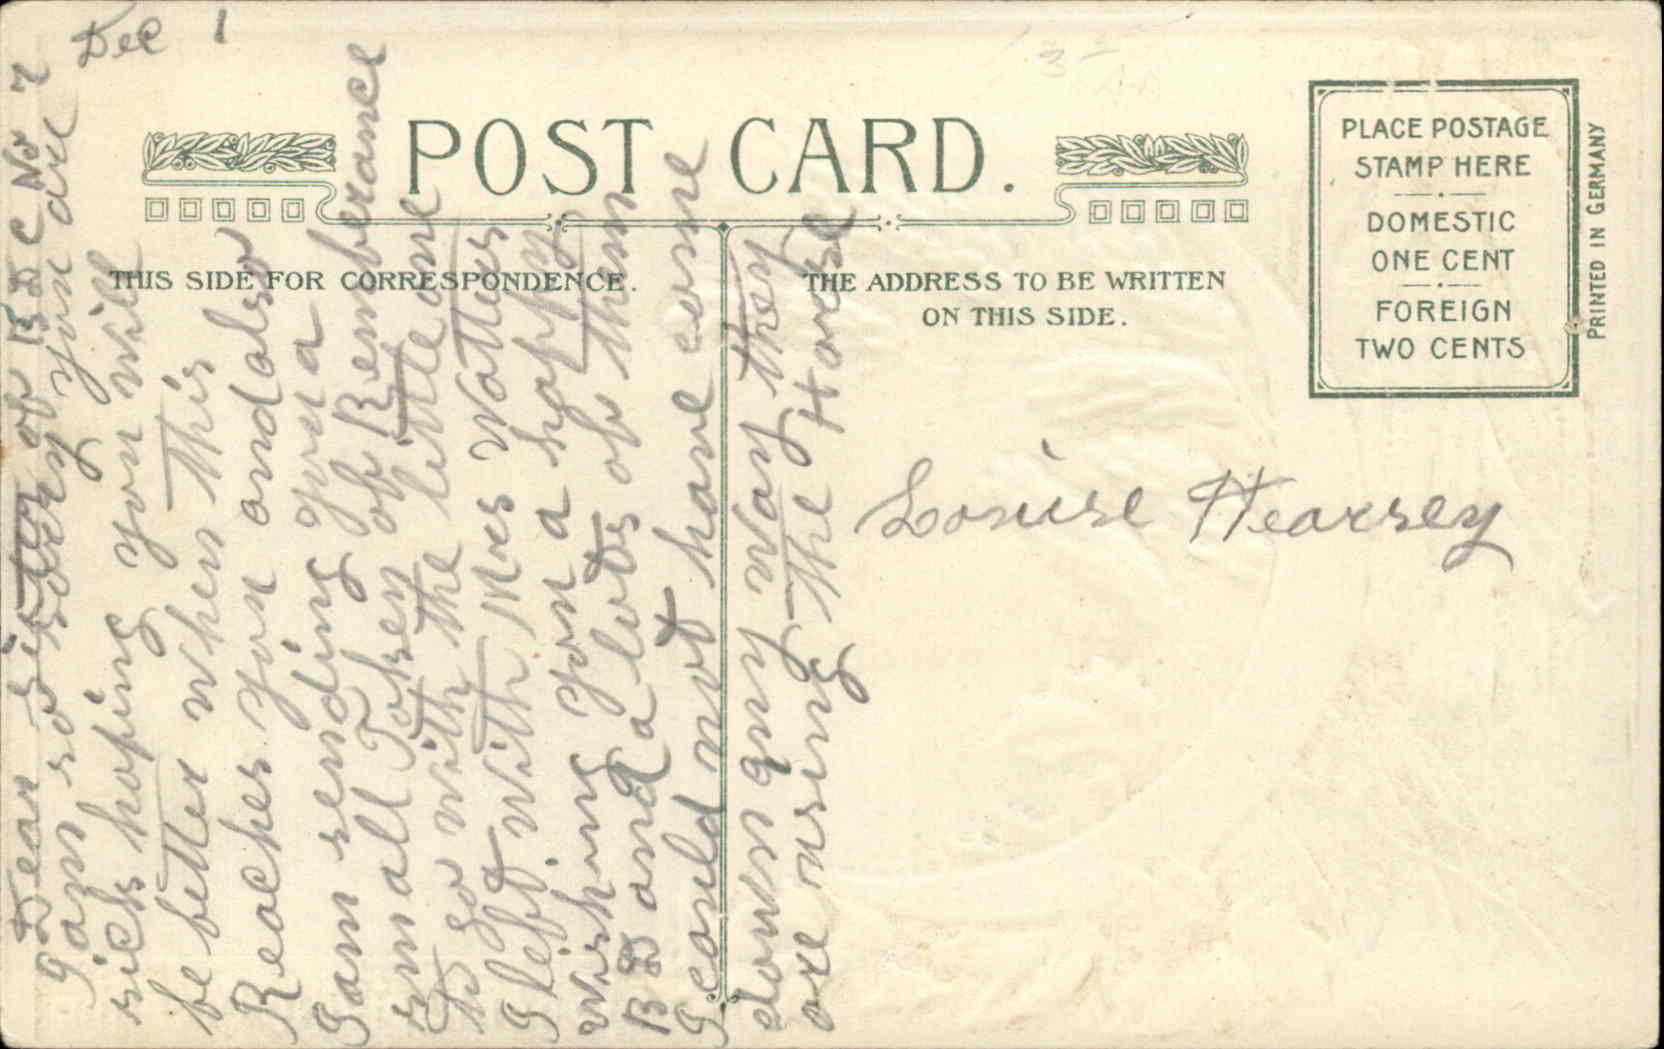 Dec 1
POST CARD.
THIS SIDE FOR CORRESPONDENCE.
THE ADDRESS TO BE WRITTEN
ON THIS SIDE.
PLACE POSTAGE
STAMP HERE
DOMESTIC
ONE CENT
FOREIGN
TWO CENTS
PRINTED IN GERMANY
Louise Hearsey
Dear sister of B D C No 2
I am so sorry you are
sick hoping you will
be better when this
Reaches you and also
I am sending you a
small Token of Remberance
to go with the little one
I left with Mrs Watters
Wishing you a happy
B D and a lots of them
I could not have come
down any way they
are using the Horse